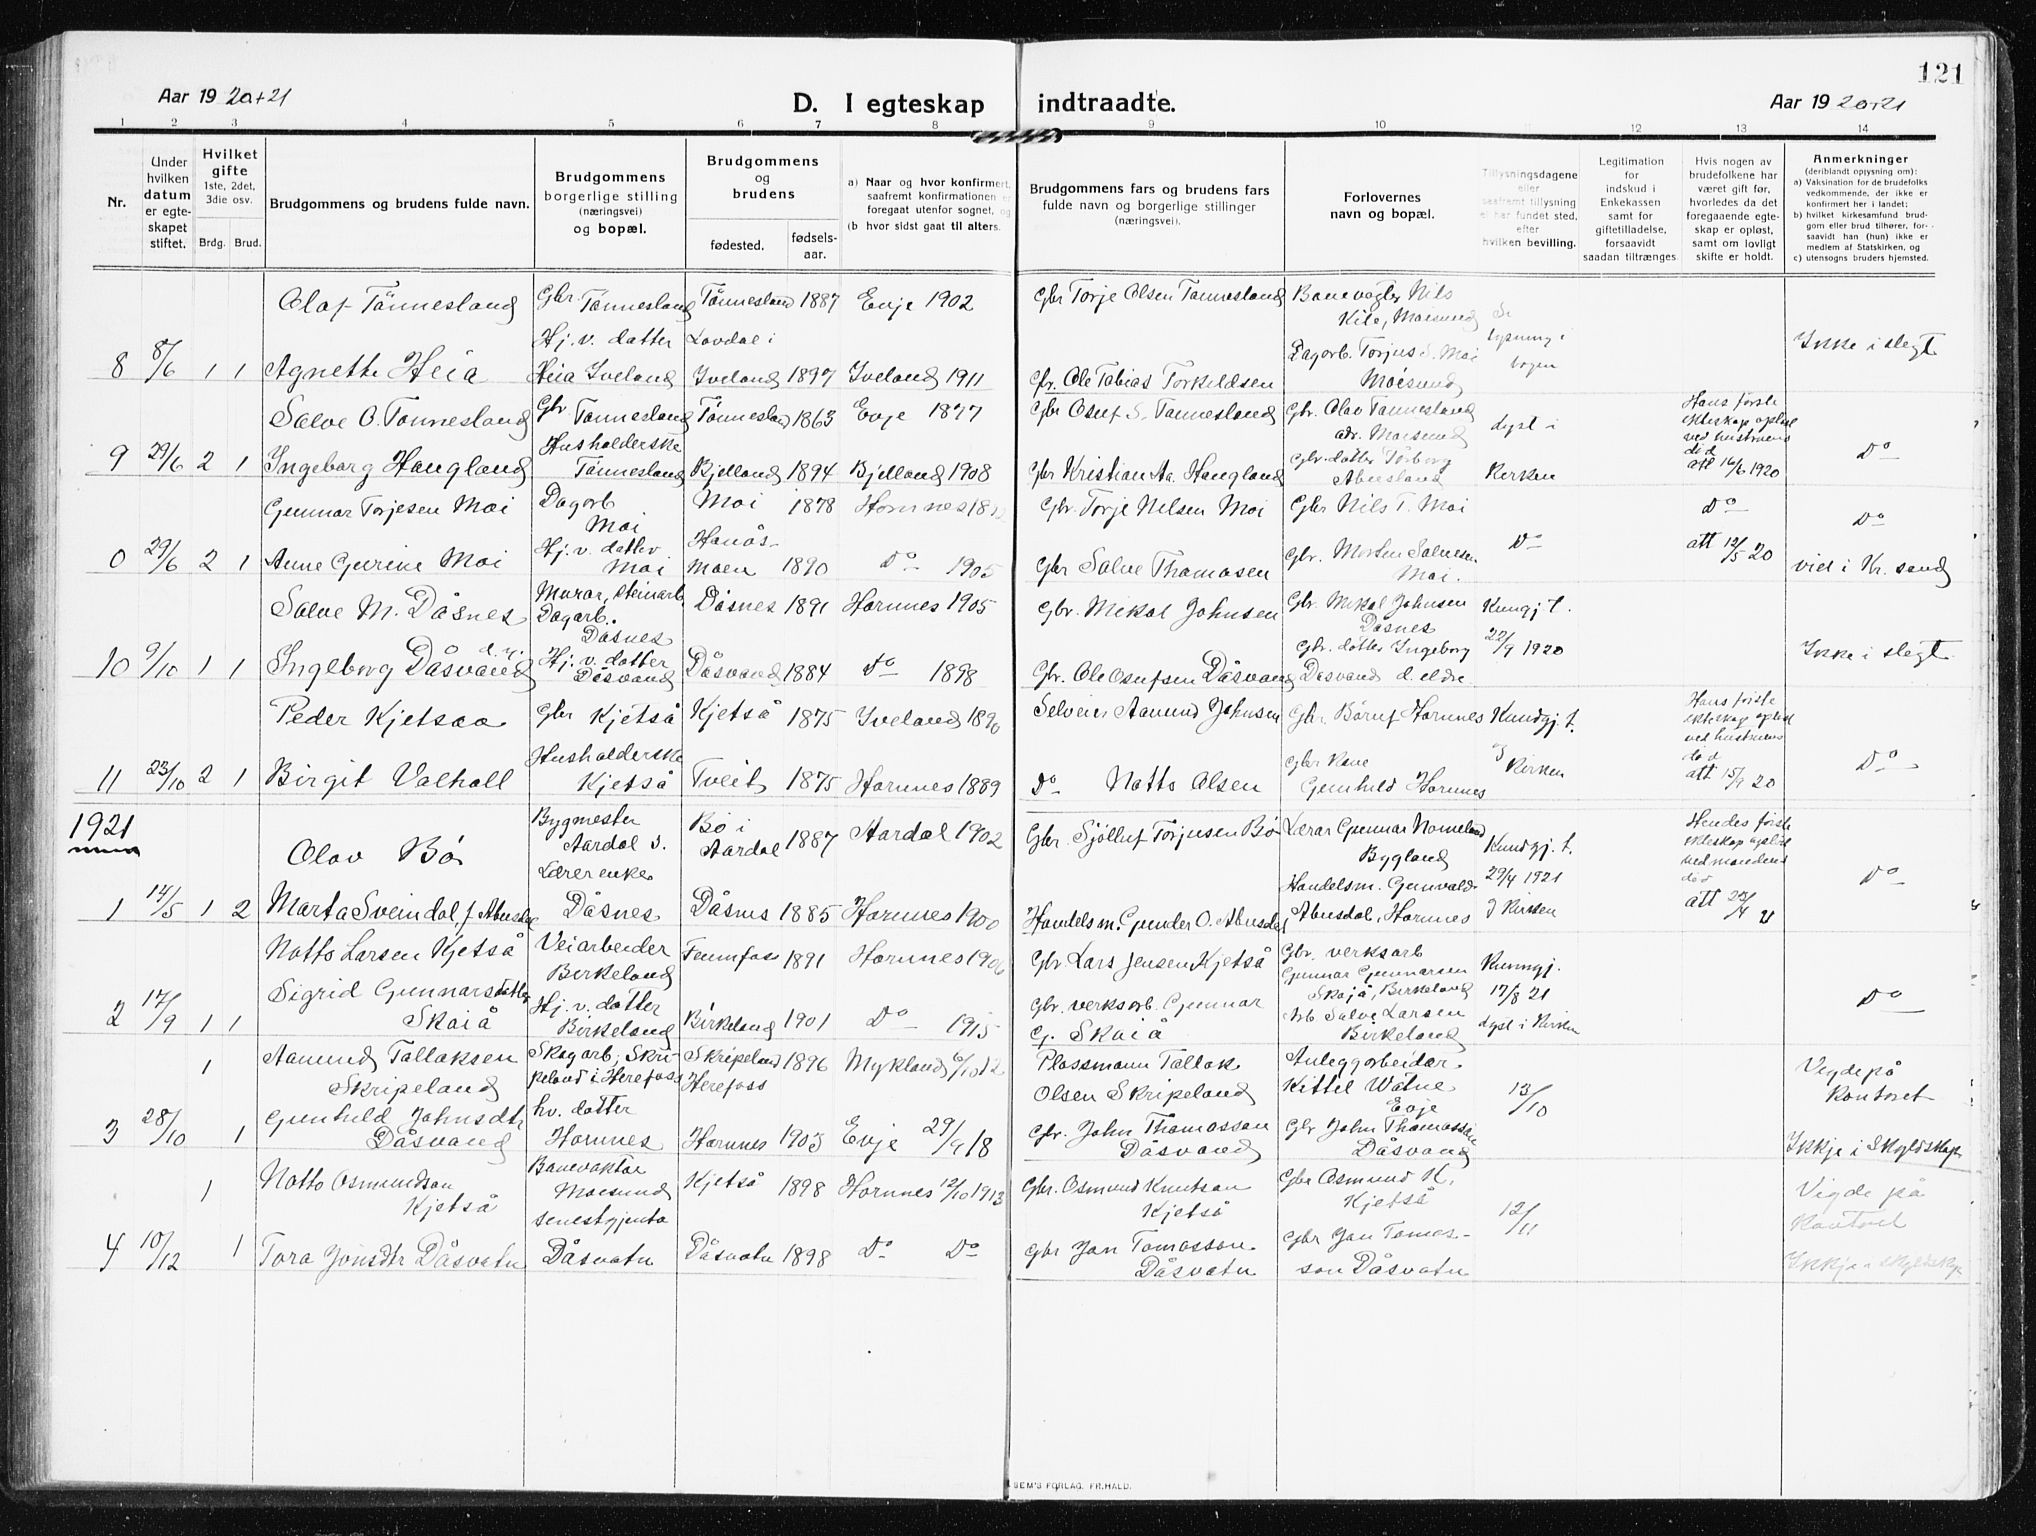 121
Aar 1920+21
D. I egteskap indtraadte.
Aar 1920+21
1 2 3 4 5 6 7 8 9 10 12 13 14
Nr.
Under hvilken datum er egteskapet stiftet.
Hvilket gifte 1ste, 2det, 3die osv.
Brdg. Brud.
Brudgommens og brudens fulde navn.
Brudgommens borgerlige stilling (næringsvei) og bopæl.
Brudgommens og brudens
fødested. fødselsaar.
a) Naar og hvor konfirmert, saafremt konfirmationen er foregaat utenfor sognet, og
(b hvor sidst gaat til alters.
Brudgommens fars og brudens fars fulde navn og borgerlige stillinger (næringsvei).
Forlovernes navn og bopæl.
Tillysningsdagene eller saafremt tillysning ei har fundet sted, efter hvilken bevilling.
Legitimation for indskud i Enkekassen samt for giftetilladelse, forsaavidt saadan tiltrænges.
Hvis nogen av brudefolkene har været gift før, hvorledes da det foregaaende egteskap er opløst, samt om lovligt skifte er holdt.
Anmerkninger (deriblandt opysning om):
a) Vaksination for de brudefolks vedkommende, der ikke er konfirmert her i landet;
b) hvilket kirkesamfund brudgom eller brud tilhører, forsaavidt han (hun) ikke er medlem af Statskirken, og
c) utensogns bruders hjemsted.
Olaf Tånnesland Gbr. Tånnesland Tånnesland 1887 Evje 1902 Gbr Torje Olsen Tannesland Banevogter Nils Kile, Moesund
8 8/6 1 1 Agnethe Heia Hj. v. datter Heia Iveland Lovdal i Iveland 1897 Iveland 1911 Ole Tobias Torkeldsen Dagarb. Torjus S. Moi Moisund lysning i bogen Ikke i slegt
Salve O. Tånnesland Gbr Tånnesland Tånnesland 1863 Evje 1877 Gbr Osuf S. Tannesland Gbr. Olav Tannesland adr. Moesund
9 29/6 2 1 Ingeborg Haugland Husholderske Tånnesland Bjelland 1894 Bjelland 1908 Gbr Kristian Aa. Haugland Gbr. datter Torborg Abusland lyst i Kirken Hans første ekteskap opløst ved hustruens død att 16/6 1920 Do
Gunnar Torjesen Moi Dagarb Moi Moi 1878 Hornnes Gbr. Torje Nilsen Moi Gbr Nils T. Moi
0 29/6 2 1 Anne Gurine Moi Hj. v. datter Moi Hanåsmoen 1890 Do 1905 Gbr Salve Thomasen Gbr. Morten Salvesen Moi. Do Do att 12/5 20 Do vied i Kr. sand
Salve M. Dåsnes Murar, steinarb. Dagarb. Dåsnes Dåsnes 1891 Hornnes 1905 Gbr. Mikal Johnsen Gbr. Mikal Johnsen Dåsnes
10 9/10 1 1 Ingeborg Dåsvand d. y. Hj. v. datter Dåsvand Dåsvand 1884 Do 1898 Gbr. Ole Osufsen Dåsvand Gbr. datter Ingeborg Dåsvand d. eldre Kungj. t. 22/9 1920 Ikke i slegt
Peder Kjetsaa Gbr Kjetså Kjetså 1875 Iveland 1890 Selveier Aamund Johnsen Gbr. Børuf Hornnes
11 23/10 2 1 Birgit Valhall Husholderske Kjetså Tveit 1875 Hornnes 1889 Do Notto Olsen Gbr Kone Gunhild Hornnes Kundgj. t. i Kirken Hans første ekteskap opløst ved hustruens død att 15/1 20 Do
1921
Olav Bø Bygmester Aardal s. Bø i Aardal 1887 Aardal 1902 Gbr. Sjölluf Torjusen Bø Lærar Gunnar Nomeland Bygland
1 14/5 1 2 Marta Sveindal f. Abusdal Lærerenke Dåsnes Dåsnes 1885 Hornnes 1900 Handelsm. Gunder O. Abusdal Handelsm. Gunvald Abusdal, Hornnes Kundgj. t. 29/4 1921 i Kirken Hendes første ekteskap opløst ved mandens død att 23/4 21 Do
Notto Larsen Kjetså Veiarbeider Birkeland Fennfoss 1891 Hornnes 1906 Gbr Lars Jensen Kjetså Gbr. verksarb Gunnar Gunnarsen Skajå, Birkeland
2 17/9 1 1 Sigrid Gunnarsdatter Skaiå Hj. v. datter Birkeland Birkeland 1901 Do 1915 Gbr. verksarb. Gunnar G. Skaiå Arb Salve Larsen Birkeland Kunngj. 17/8 21 lyst i Kirken Do
1 Aamund Tallaksen Skripeland Skogarb, Skripeland i Herefoss Skripeland Herefoss 1896 Mykland 6/10 12 Plassmann Tallak Olsen Skripeland Anleggarbeidar Kittil Wåtne Evje
3 28/10 1 Gunhild Johnsdtr Dåsvand hv. datter Hornnes Hornnes 1903 Evje 29/9 18 Gbr. John Thomasson Dåsvand Gbr John Thomassøn Dåsvand 13/10 Vigde på Kontoret Ikkje i Skyldskap
1 Notto Osmundson Kjetså Banevaktar Moesund Kjetså 1898 Hornnes 12/10 1913 Gbr. Osmund Knutson Kjetså Gbr Osmund K. Kjetså
4 10/12 1 Tora Jónsdtr Dåsvatn tenestgjenta Dåsvatn Dåsvatn 1898 Do Do Gbr Jon Tomasson Dåsvatn Gbr Jon Tomasson Dåsvatn 12/11 Vigde på Kontoret Ikkje i skyldskap
SEM'S FORLAG. FR.HALD.